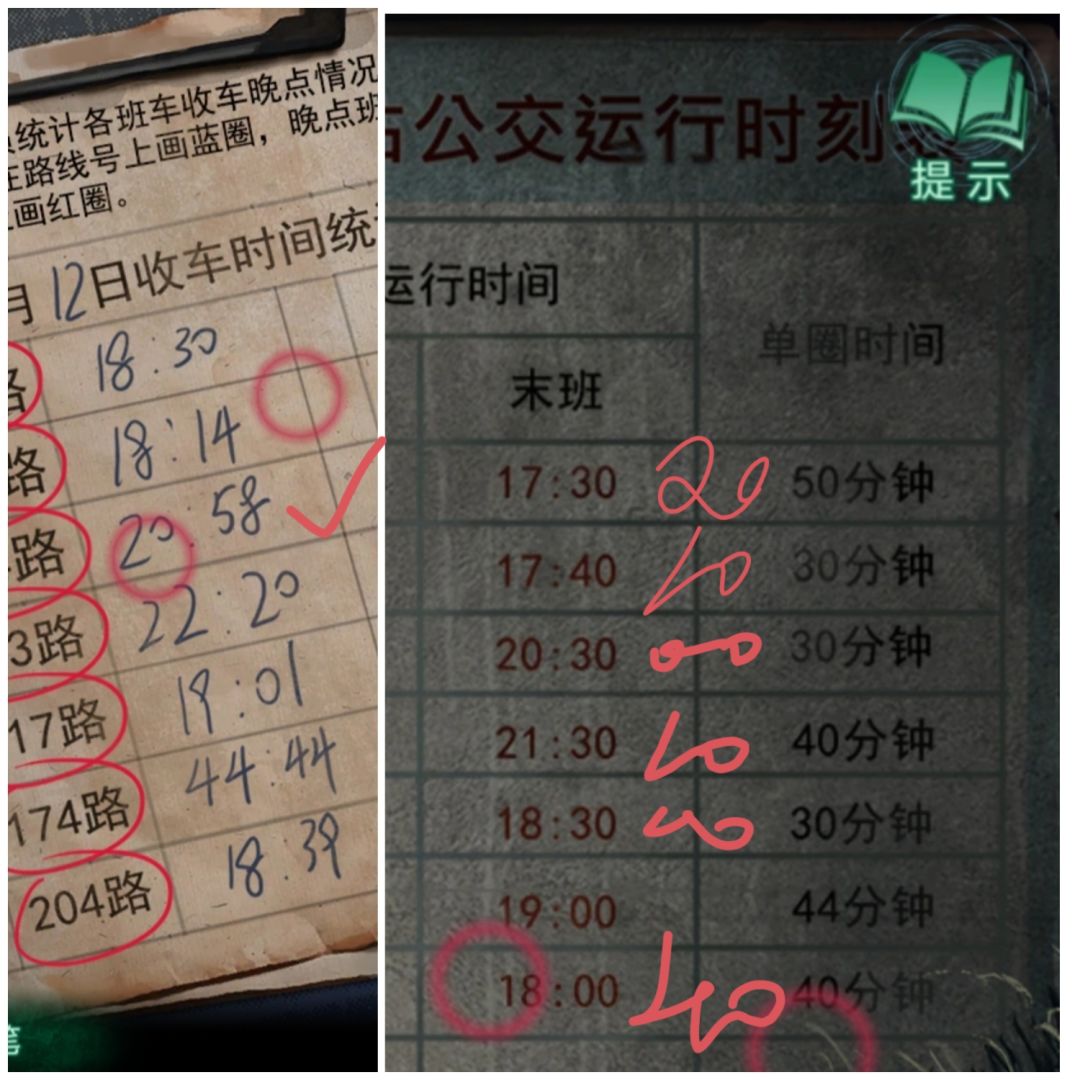 统计各班车收车晚点情况
在路线号上画蓝圈，晚点班
画红圈。
月12日收车时间统
路 18:30
路 18:14
路 20:58
3路 22:20
17路 19:01
174路 44:44
204路 18:39
笔
公交运行时刻表
提示
运行时间
单圈时间
末班
17:30 20 50分钟
17:40 10 30分钟
20:30 00 30分钟
21:30 10 40分钟
18:30 00 30分钟
19:00 44分钟
18:00 40 40分钟